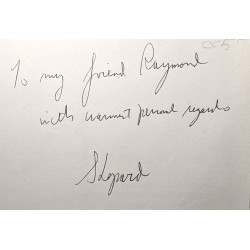 To my friend Raymond
with warmest personal regards